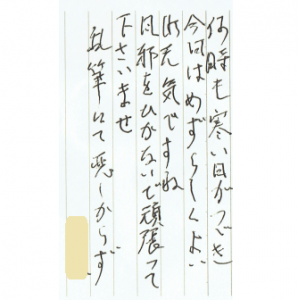 何時も寒い日がつづき
今回はめずらしくよい
お天気ですね
風邪をひかないで頑張って
下さいませ
乱筆にて悪しからず